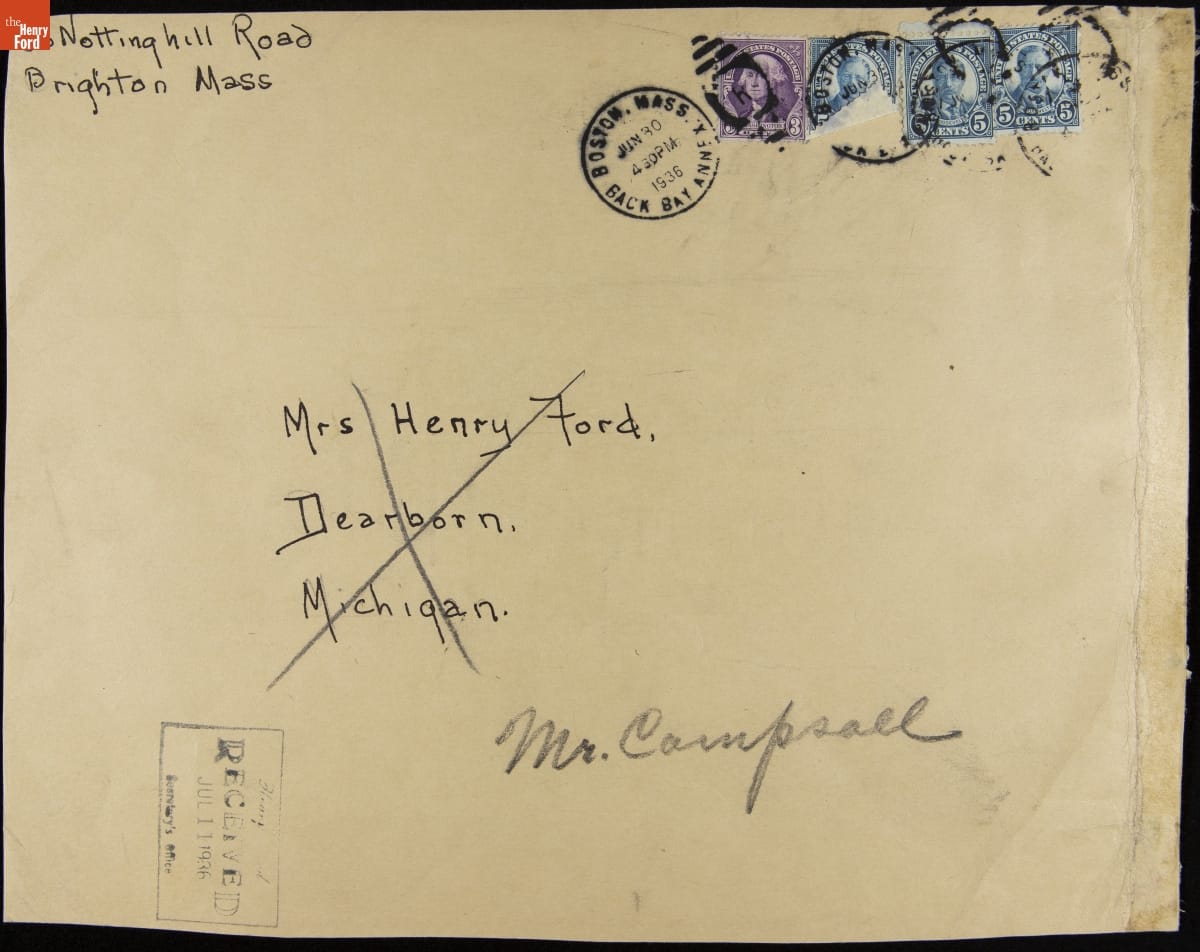 the
Henry
Ford
Nottinghill Road
Brighton Mass
UNITED STATES POSTAGE
3
BOSTON, MASS. X
JUN 30
430 PM
1936
BACK BAY ANNEX
BOSTON, MAS
JUN 3
5 5
CENTS
UNITED STATES POSTAGE
5 CENTS 5
Mrs Henry Ford,
Dearborn,
Michigan.
Mr. Campsall
Henry
RECEIVED
JUL 11 1936
Secretary's Office